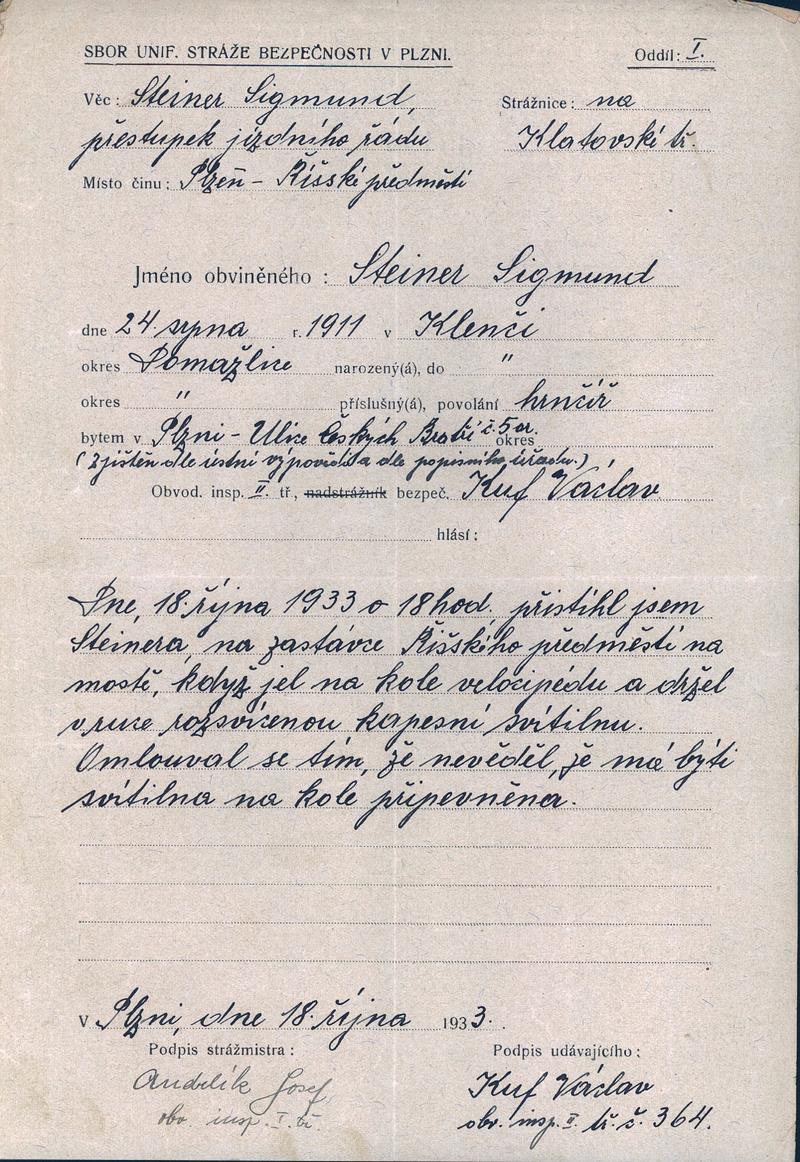 SBOR UNIF. STRÁŽE BEZPEČNOSTI V PLZNI.
Oddíl: I.
Věc: Steiner Sigmund,
Strážnice: na
přestupek jízdního řádu
Klatovské tř.
Místo činu: Plzeň - Říšské předměstí
Jméno obviněného : Steiner Sigmund
dne 24. srpna r. 1911 v Klenči
okres Domažlice narozený(á), do "
okres " příslušný(á), povolání hrnčíř
bytem v Plzni - Ulice Českých Bratří č. 5 okres
(Zjištěn dle ústní výpovědi a dle popisního úřadu.)
Obvod. insp. II. tř., nadstrážník bezpeč. Kuf Václav
hlásí:
Dne, 18. října 1933 o 18 hod. přistihl jsem
Steinera, na zastávce Říšského předměstí na
mostě, když jel na kole velocipédu a držel
v ruce rozsvícenou kapesní svítilnu.
Omlouval se tím, že nevěděl, že má býti
svítilna na kole připevněna.
v Plzni, dne 18. října 1933.
Podpis strážmistra:
Podpis udávajícího:
Andrlík Josef
Kuf Václav
obv. insp. I. tř.
obv. insp. II. tř. č. 364.